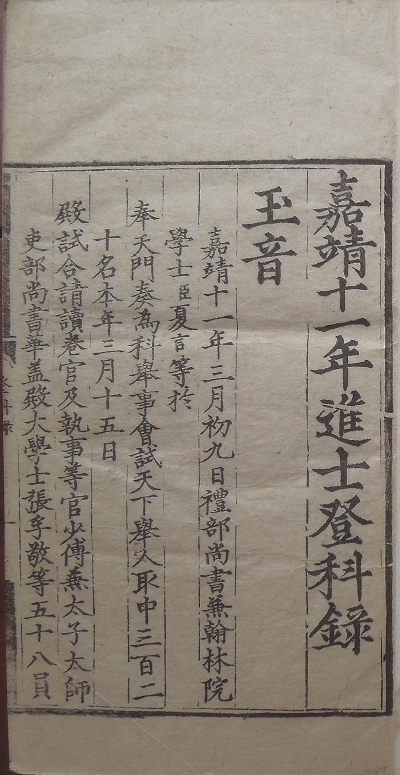 嘉靖十一年進士登科錄
玉音
嘉靖十一年三月初九日禮部尚書兼翰林院
學士臣夏言等於
奉天門奏為科舉事會試天下舉人取中三百二
十名本年三月十五日
殿試合請讀卷官及執事等官少傅兼太子太師
吏部尚書華蓋殿大學士張孚敬等五十八員